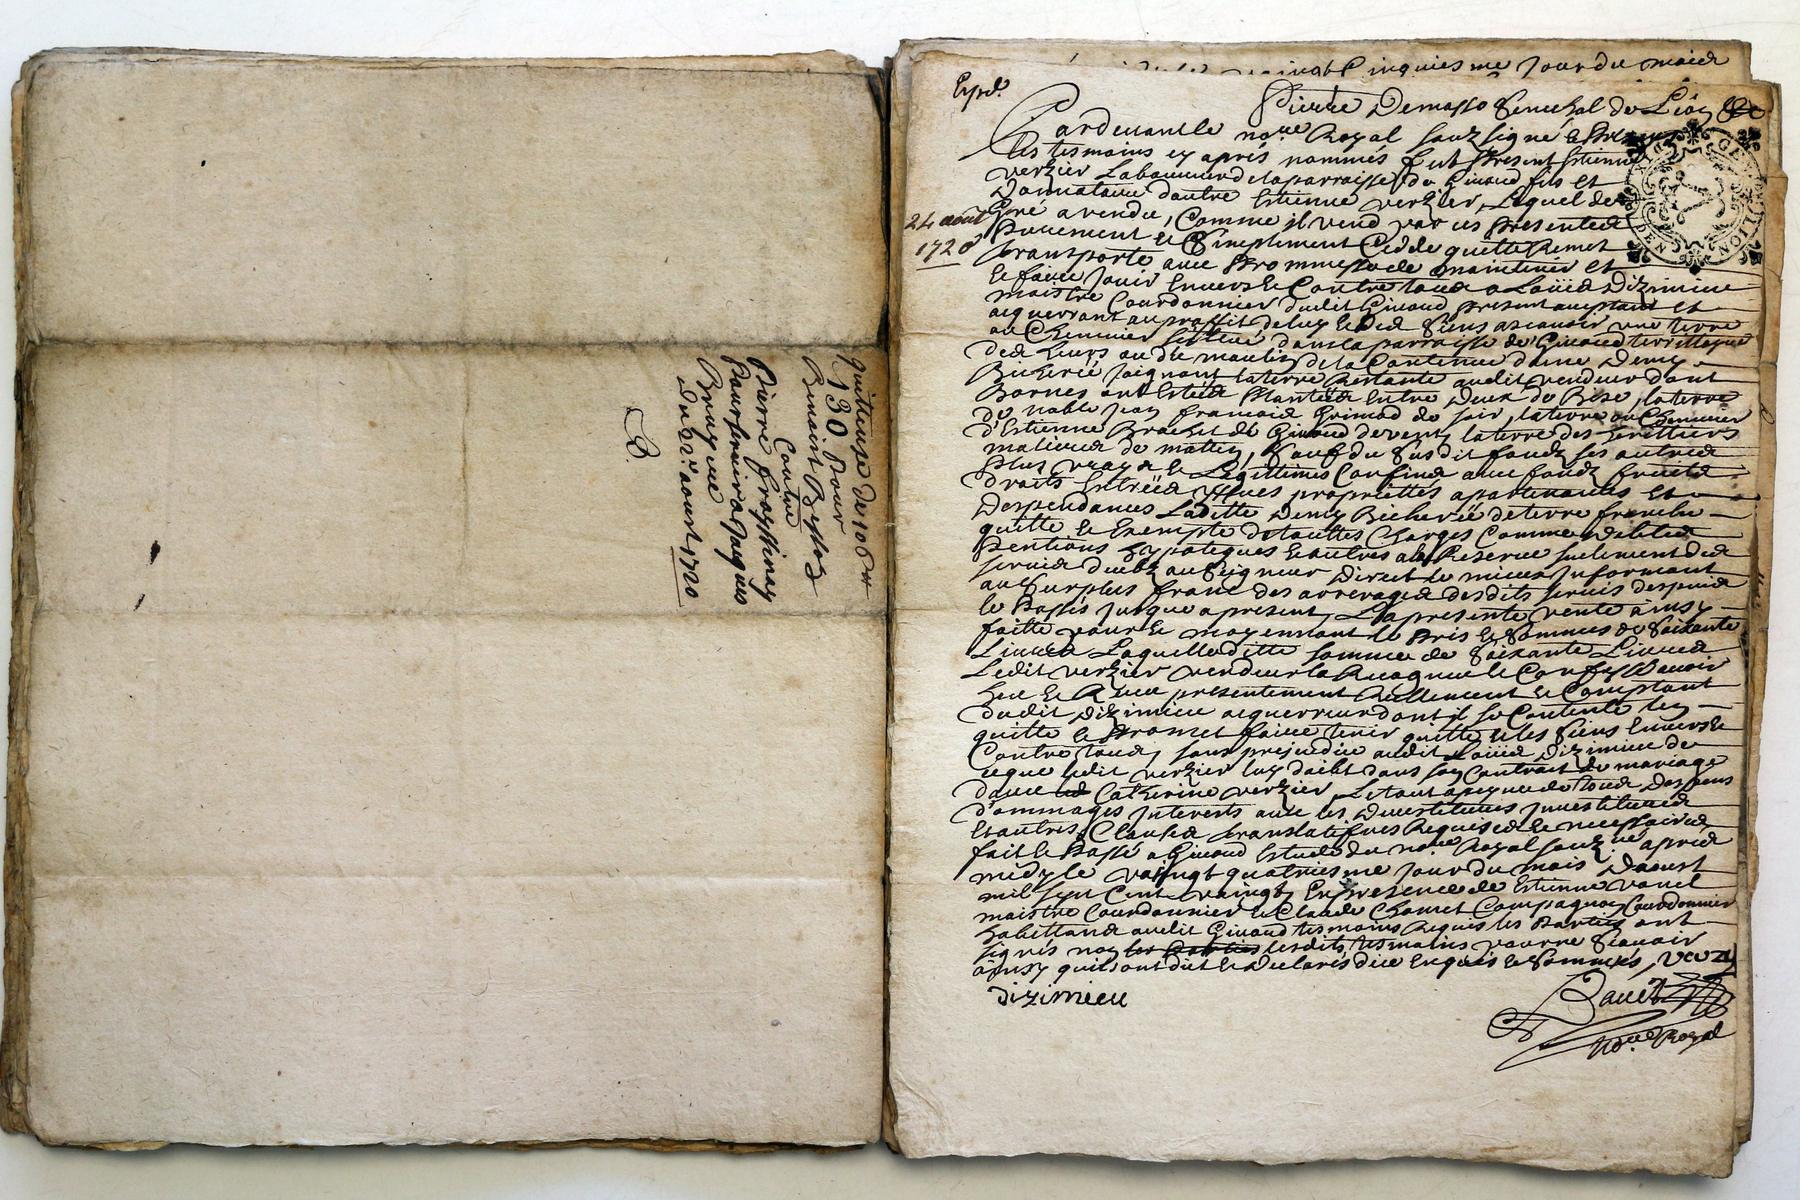 quittense de 106 ₶
130 pour
Benoist
Contre
Pierre
Jacques
du 22e aoust 1720
vaingt Cinquiesme Jour du mois
Expd.
Pierre Demasso Senechal de Lion
Pardevant le nore Royal souzsigné & Pres
les tesmoins cy aprés nommés fut Present Estienne
verzier Laboureur de la parraisse de Givaud fils et
Donnataire dautre Estienne verzier, Lequel de
24 aout
1720
Gré a vendu, Comme il vend par ces Presentes
Purement & Simplement Cedde quitte Remet
transporte avec Promesse de maintenir et
le faire Jouir Envers & Contre tous a Loüis Dizimieu
maistre Courdonnier dudit Givaud present acceptant et
acquerrant au proffit de luy & des Siens ascavoir une terre
situé dans la parraisse de Givaud
de la Contenue dune Demy
Bicherée Joignant la terre Restante audit vendeur dont
Bornes ont Estés Plantées Entre Deux de Bize, la terre
de noble Jean francois Grimod de soir, la terre
d'Estienne Brachet de Givaud de vent, la terre des herittiers
de mattin, Sauf du Susdit fondz ses autres
Plus vrays & Legittimes Confins avec fondz fruits
droits Entrées yssues proprietés apartenances Et
Despendances Laditte Demy Bicherée de terre franche
quitte & Exempte de touttes Charges Comme debtes
Pentions hypoteques & autres a la Reserve seulement des
servis deubz au Seigneur Direct le mieux Informant
au Surplus franc des arrerages desdits servis
le Passés Jusque a present, La presente vente ainsy
faitte pour & moyennant le Pris & Somme de Soixante
Livres Laquelle ditte somme de Soixante Livres
Ledit verzier vendeur la Recognue & Confesse avoir
heu & Receu presentement Reellement & Comptant
dudit Dizimieu acquerreur dont il se Contente len
quitte & Promet faire tenir quitte & les Siens Envers &
Contre tous, sans prejudice audit Loüis Dizimieu de
ceque ledit verzier luy doibt dans son Contrait de mariage
davec Catherine verzier Le tout a peyne de tous Despens
d'ommages Interests avec les Devestitures Investitures
& autres Clauses translatifves Requises & necessaires
fait & Passé a Givaud Estude du nore Royal souzné apréd
midy le vaingt quatriesme Jour du mois Daoust
mil sept Cent vaingt, En presence de Estienne vanel
maistre Courdonnier & Claude Chomet Compagnon Courdonnier
habittans audit Givaud tesmoins Requis les Parties ont
signés non les Parties lesdits tesmoins pour ne Scavoir
ainsy quils ont dit & Declarés dice Enquis & Sommés,
dizimieu
nore Royal